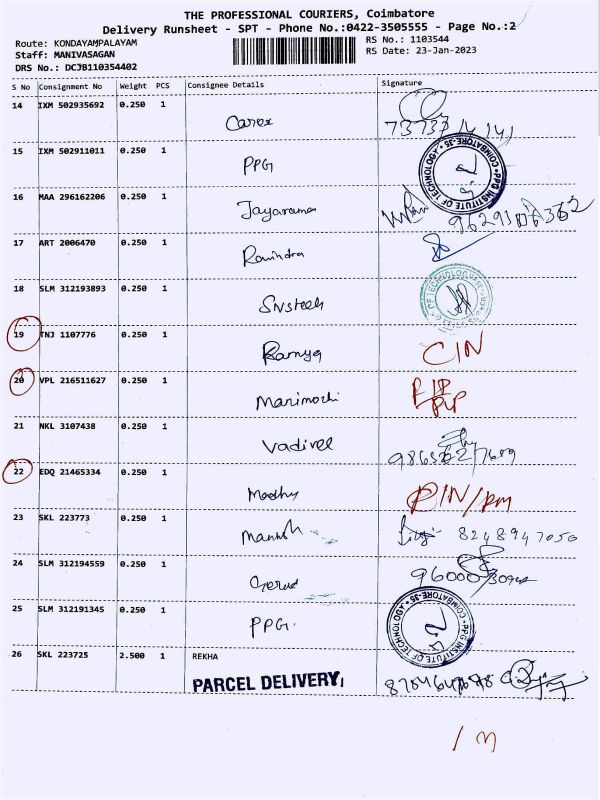 THE PROFESSIONAL COURIERS, Coimbatore
Delivery Runsheet - SPT - Phone No.:0422-3505555 - Page No.:2
Route: KONDAYAMPALAYAM
RS No.: 1103544
Staff: MANIVASAGAN
RS Date: 23-Jan-2023
DRS No.: DCJB110354402
S No Consignment No Weight PCS Consignee Details Signature
14 IXM 502935692 0.250 1
15 IXM 502911011 0.250 1 PPG
PPG INSTITUTE OF TECHNOLOGY COIMBATORE-35
16 MAA 296162206 0.250 1 Jayarama
17 ART 2006470 0.250 1 Ravindra
18 SLM 312193893 0.250 1
19 TNJ 1107776 0.250 1 Ramya CIN
20 VPL 216511627 0.250 1
21 NKL 3107438 0.250 1 Vadivel
22 EDQ 21465334 0.250 1 Madhu
23 SKL 223773 0.250 1 8248947050
24 SLM 312194559 0.250 1
25 SLM 312191345 0.250 1 PPG.
PPG INSTITUTE OF TECHNOLOGY COIMBATORE-35
26 SKL 223725 2.500 1 REKHA
PARCEL DELIVERY